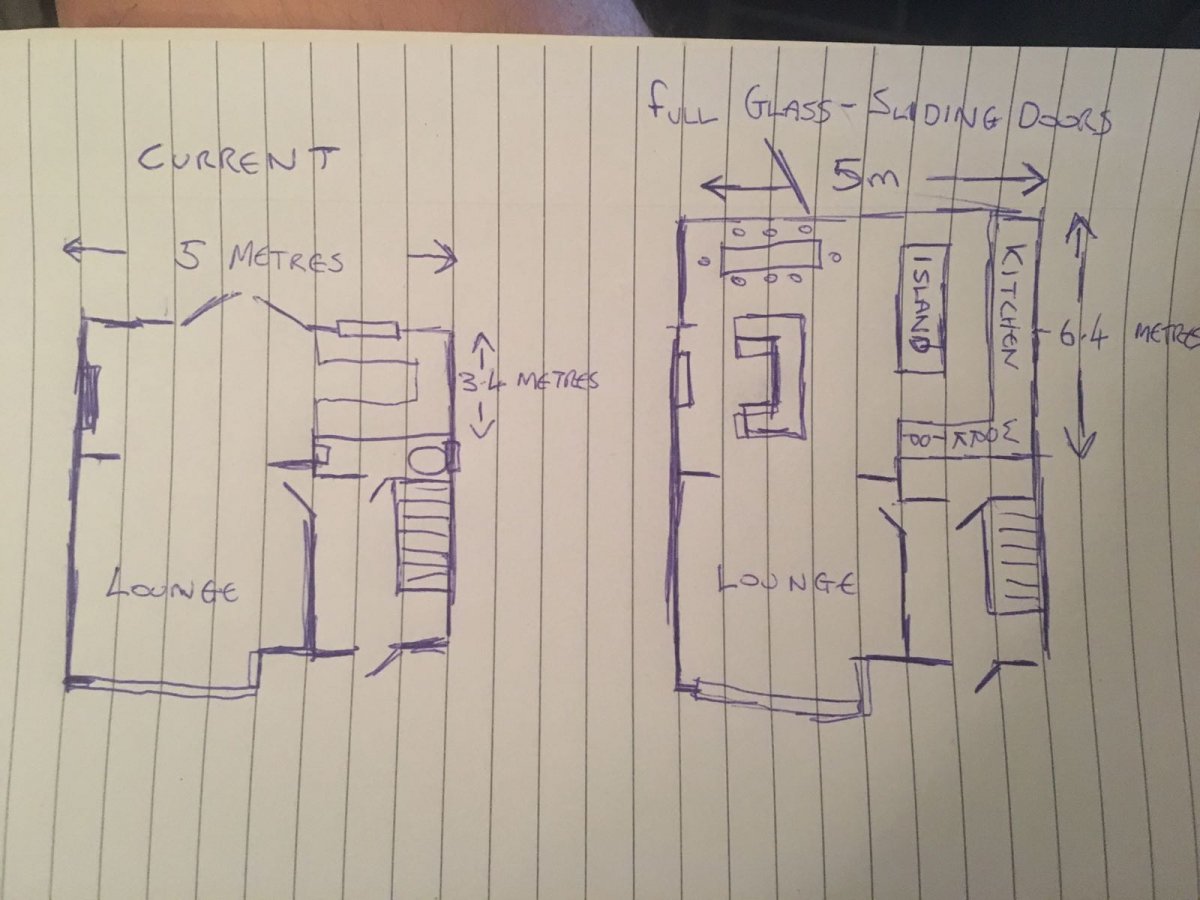 CURRENT
5 METRES
3.4 METRES
LOUNGE
FULL GLASS - SLIDING DOORS
5m
ISLAND
KITCHEN
6.4 METRES
LOUNGE